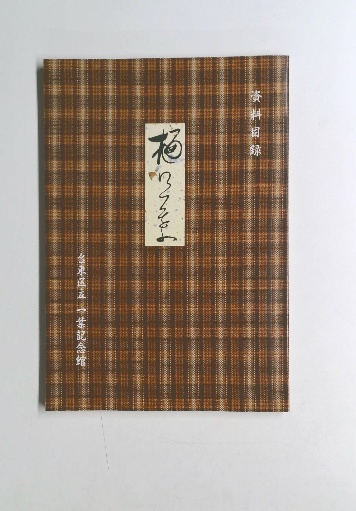 資料目録
樋口一葉
台東区立 一葉記念館